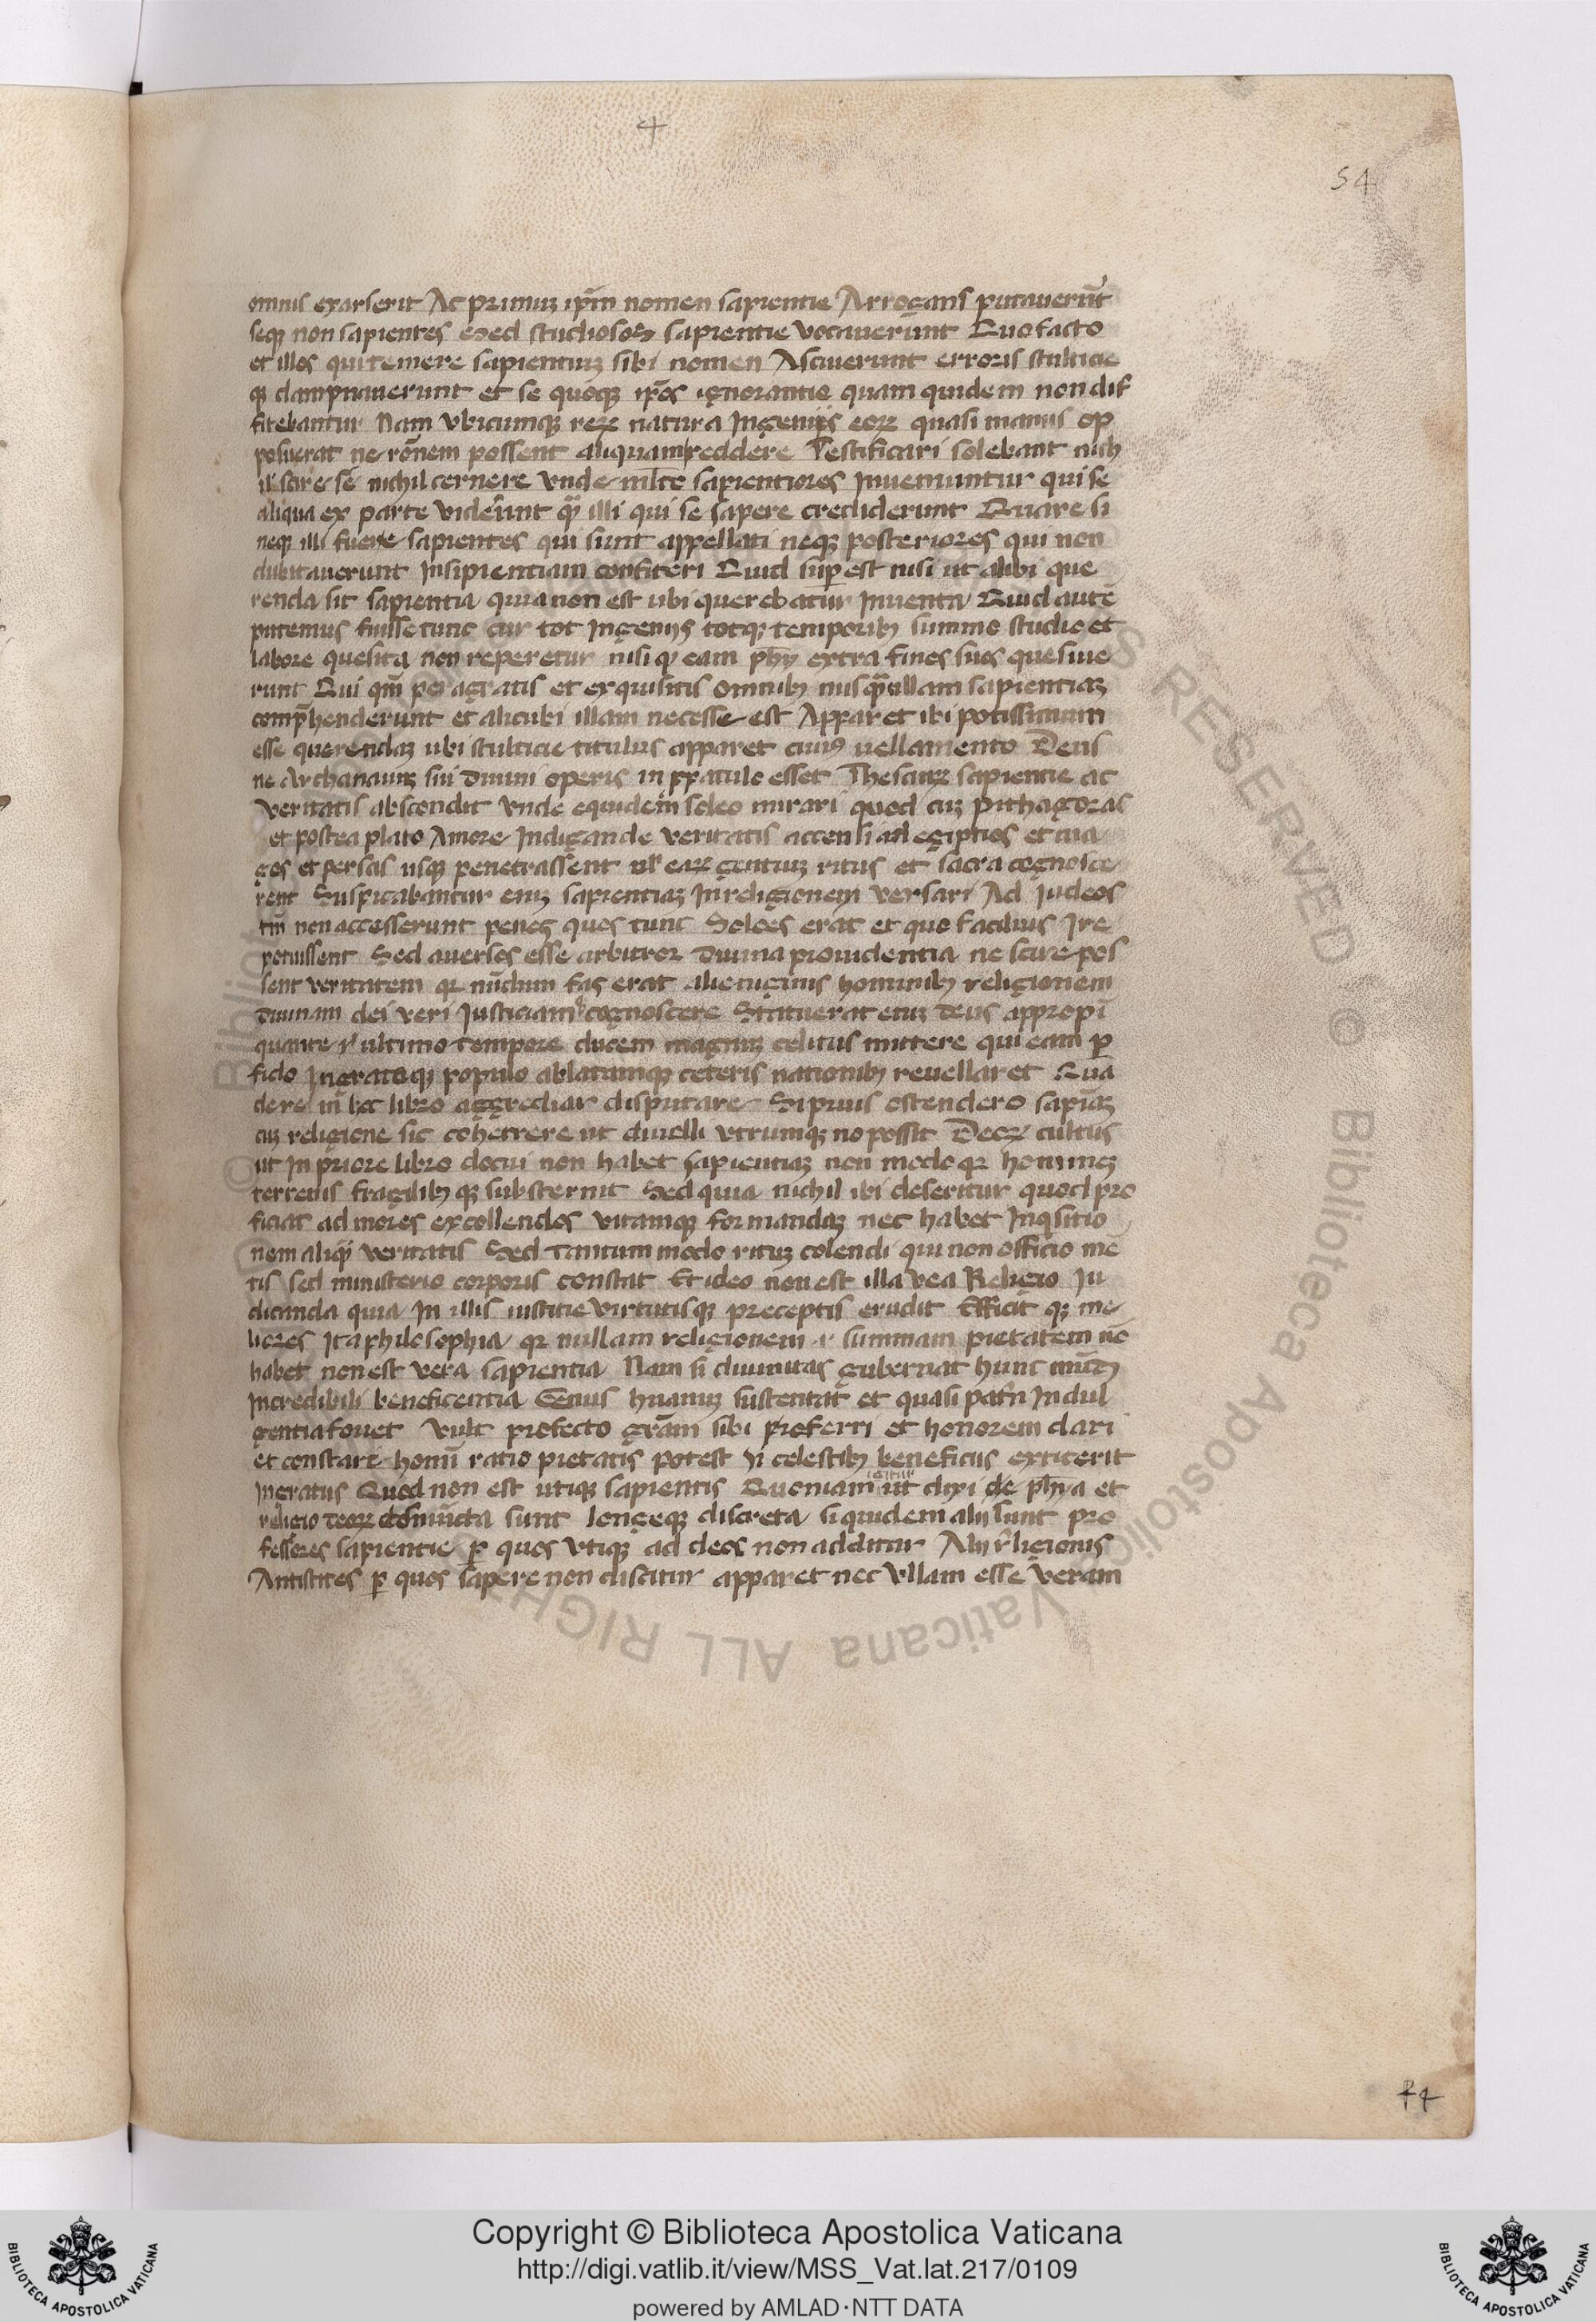 4
54
omnis exarserit Ac primuz ip̄m nomen sapientie Arrogans putauerūt
seqꝫ non sapientes Sed studiosos sapientie vocauerunt Quo facto
et illos qui temere sapientum sibi nomen Asciuerunt erroris stulticie
qꝫ dampnauerunt et se quoqꝫ ip̄os ignorantie quam quidem non dif
fitebantur Nam vbicumqꝫ reꝝ natura Ingeniis eoꝝ quasi manus op
posuerat ne rōnem possent aliquam reddere Testificari solebant nich
il scire se nichil cernere vnde ml̄to sapientiores Inueniuntur qui se
aliqua ex parte viderunt qꝫ illi qui se sapere crediderunt Quare si
neqꝫ illi fuere sapientes qui sunt appellati neqꝫ posteriores qui non
dubitauerunt Insipientiam confiteri Quid suꝑest nisi ut alibi que
renda sit sapientia quia non est ubi querebatur Inuenta Quid autē
putemus fuisse tunc cur tot Ingeniis totqꝫ temporibꝫ summo studio et
labore quesita non reperetur nisi qꝫ eam ph̄y extra fines suos quesiue
runt Qui qm̄ peragratis et exquisitis omnibꝫ nusqꝫ ullam sapientiaꝫ
comp̄henderunt et alicubi illam necesse est Apparet ibi potissimum
esse querendaꝫ ubi stulticie titulus apparet cuiꝰ uellamento Deus
ne Archanuꝫ sui diuini operis in ꝓpatulo esset Thesauꝝ sapientie ac
veritatis abscondit vnde equidem soleo mirari quod cuꝫ pithagoras
et postea plato Amore Indigande veritatis accensi ad egiptios et ma
gos et persas usqꝫ penetrassent ut eaꝝ gentium ritus et sacra cognosce
rent Suspicabantur eniꝫ sapientiaꝫ In religionem versari Ad Iudeos
tm̄ non accesserunt penes quos tunc Soloes erat et quo facilius Ire
potuissent Sed auersos esse arbitror diuina prouidentia ne scire pos
sent veritatem qꝛ nūdum fas erat alieniginis hominibꝫ religionem
diuinam dei veri Iusticiam cognoscere Statuerat eniꝫ deus appropī
quante ultimo tempore ducem magnuꝫ celitus mittere qui eam ꝑ
fido Ingratoqꝫ populo ablatamqꝫ ceteris nationibꝫ reuellaret Qua
de re in hoc libro aggrediar disputare Si prius ostendero sapiāꝫ
cuꝫ religione sic coherrere ut diuelli vtrumqꝫ no possit Deoꝝ cultus
ut In priore libro docui non habet sapientiaꝫ non modo qꝛ homineꝫ
terrenis fragilibꝫ qꝫ substernit Sed quia nichil ibi deseritur quod pro
ficiat ad mores excollendos vitamqꝫ formandaꝫ nec habet Inqsitio
nem aliqꝫ veritatis Sed tantummodo rituꝫ colendi qui non officio mē
tis sed ministerio corporis constat Et ideo non est illa vea Religio Iu
dicanda quia In illis iusticie virtutisqꝫ preceptis erudit Efficit qꝫ me
liores Ita philosophia qꝛ nullam religionem .i. summam pietatem nō
habet non est vera sapientia Nam si diuinitas gubernat hunc mūdꝫ
Incredibili beneficentia Genus hūanuꝫ sustentat et quasi pat̄n Indul
gentia fouet vult profecto grām sibi proferri et honorem dari
et constare homī ratio pietatis potest Si celestibꝫ beneficiis extiterit
Ingratus Quod non est utiqꝫ sapientis Quoniam igitur ut dixi de ph̄ya et
religio deoꝝ coniūcta sunt longeqꝫ discreta siquidem alij sunt pro
fessores sapientie ꝑ quos vtiqꝫ ad deos non additur Alij r̄ligionis
Antistites ꝑ quos sapere non discitur apparet nec vllam esse veram
© Biblioteca Apostolica Vaticana ALL RIGHTS RESERVED © Biblioteca Apostolica Vaticana
Copyright © Biblioteca Apostolica Vaticana
http://digi.vatlib.it/view/MSS_Vat.lat.217/0109
powered by AMLAD·NTT DATA
BIBLIOTECA APOSTOLICA VATICANA
BIBLIOTECA APOSTOLICA VATICANA